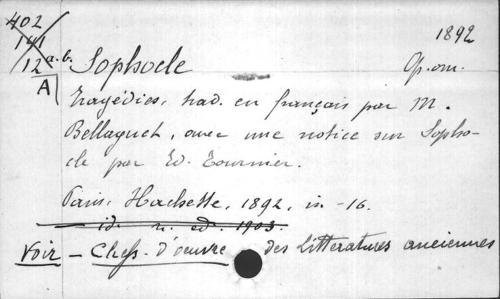 402
141
12 a.b.
A
1892
Sophocle
Op. om.
Tragédies, trad. en français par M.
Bellaguet, avec une notice sur Sopho-
cle par Ed. Tournier.
Paris, Hachette, 1892, in-16.
— id. n. ed. 1903.
Voir — Chefs-d'oeuvre des littératures anciennes